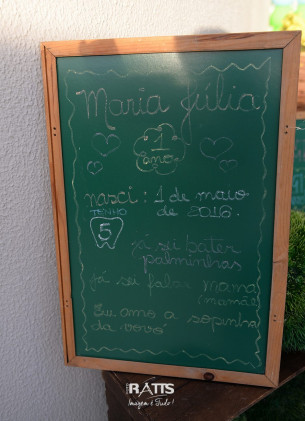 Maria Júlia
1
ano
nasci: 1 de maio
de 2016.
TENHO
5
já sei bater
palminhas
já sei falar mama
(mamãe)
Eu amo a sopinha
da vovó
RATTS
Imagem é Tudo!